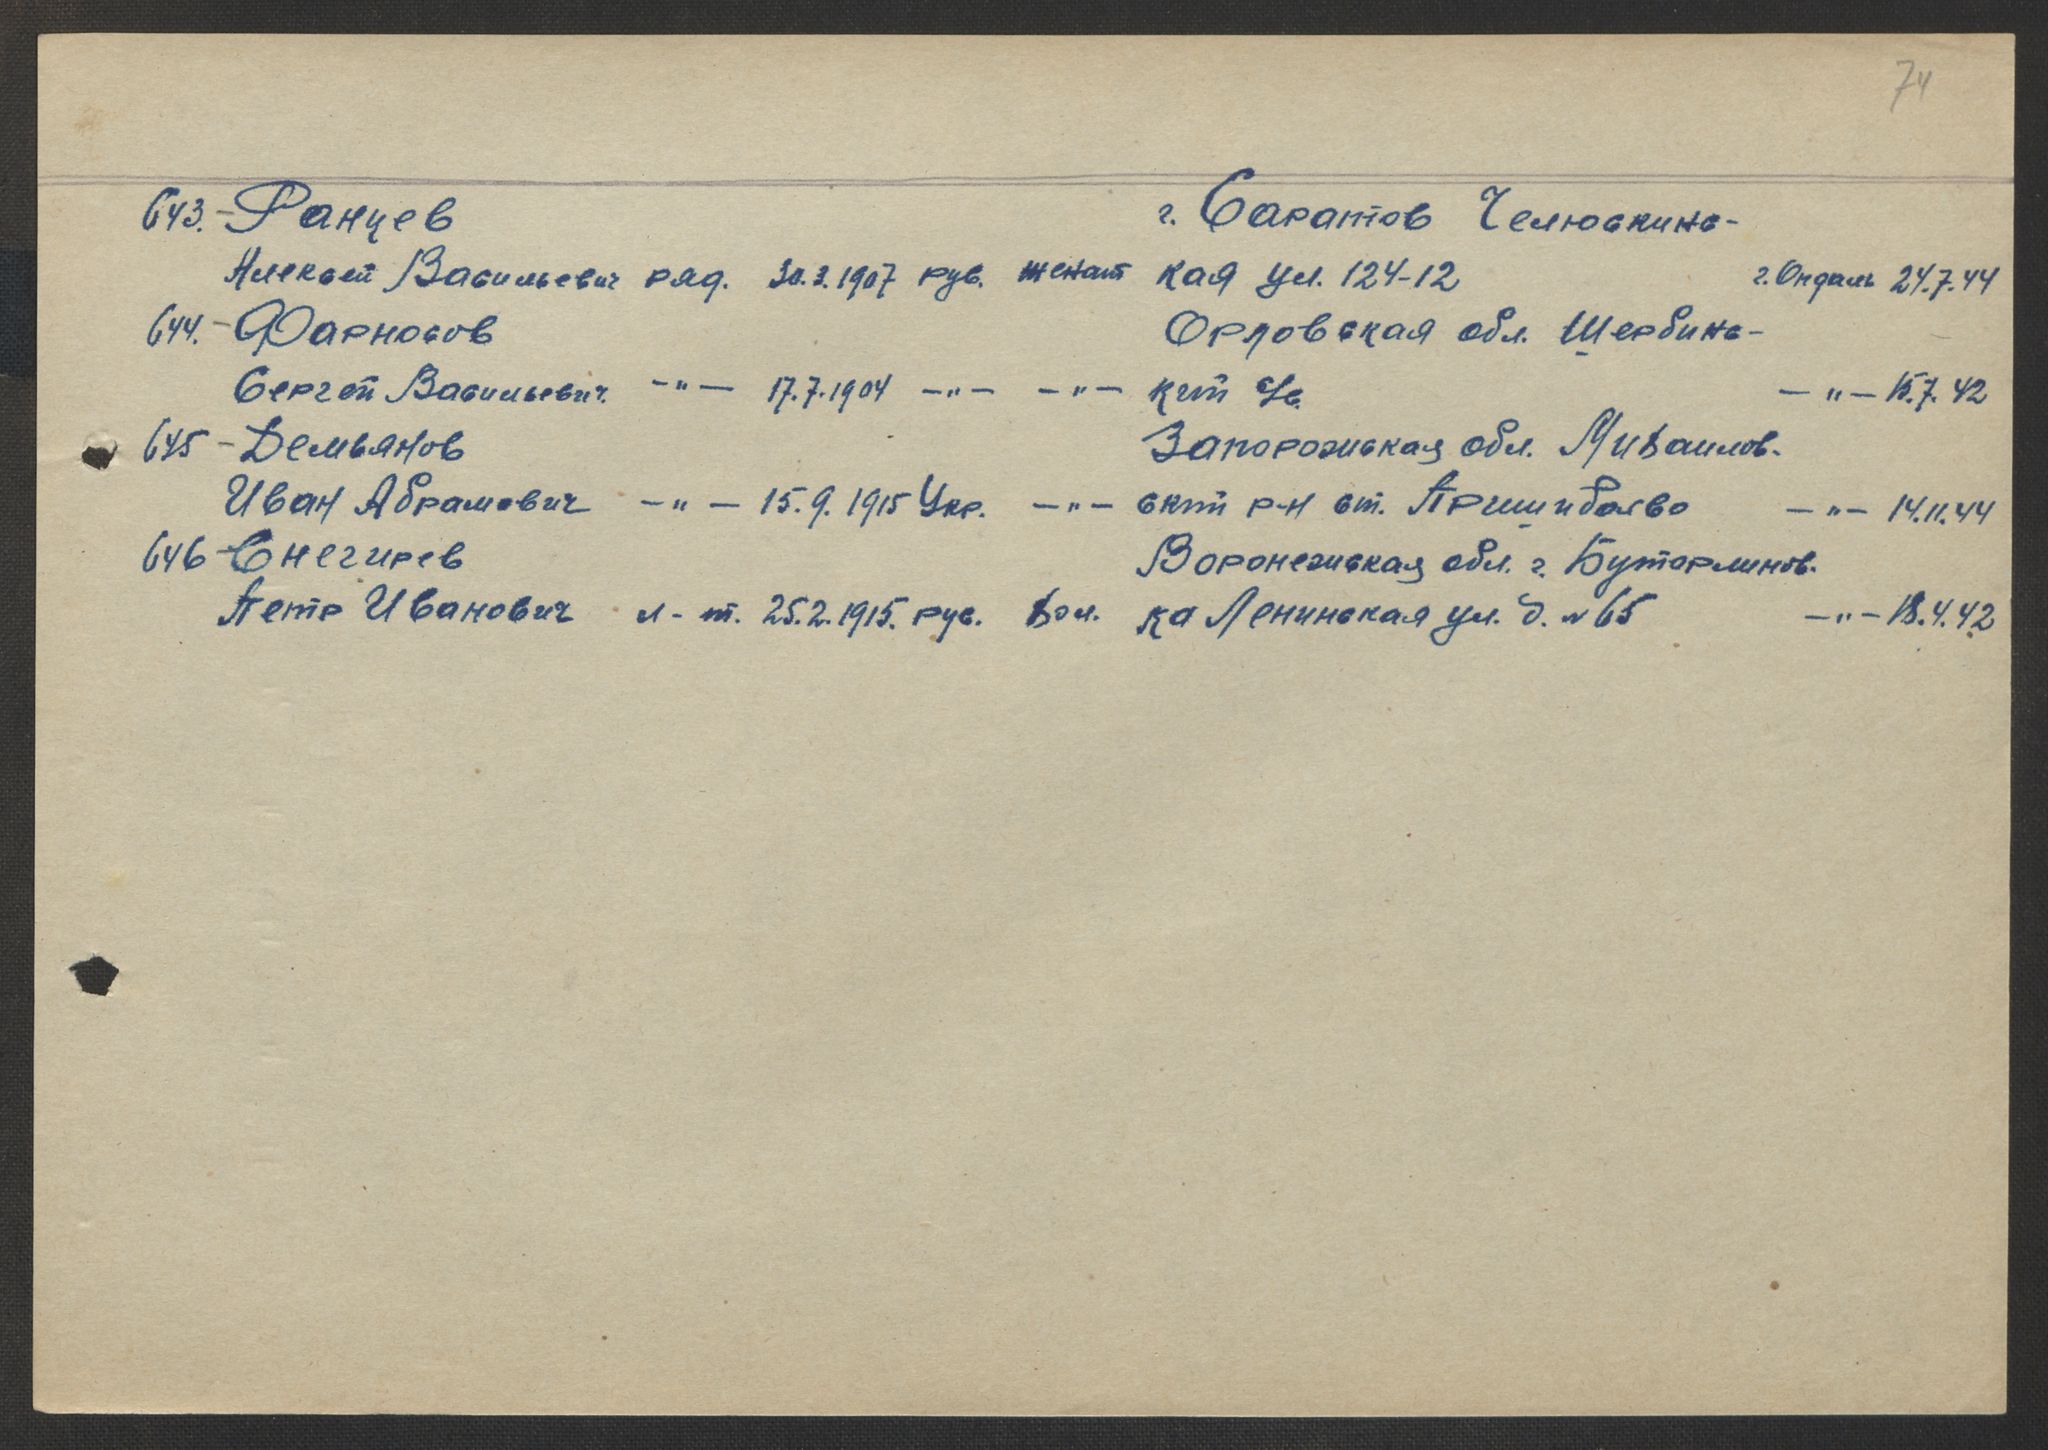 74
643. – Ранцев г. Саратов Челюскинс-
Алексей Васильевич ряд. 30.3.1907 рус. женат кая ул. 124-12 г. Ондаль 24.7.44
644. – Фарносов Орловская обл. Шербинс-
Сергей Васильевич. –"– 17.7.1904 –"– –"– кий –"– 15.7.42
645 – Демьянов Запорожская обл. Михаилов.
Иван Абрамович –"– 15.9.1915 Укр. –"– ский р-н ст. –"– 14.11.44
646 – Снегирев Воронежская обл. г. Буторлинов.
Петр Иванович л-т. 25.2.1915. рус. хол. ка Ленинская ул. д. № 65 –"– 18.4.42